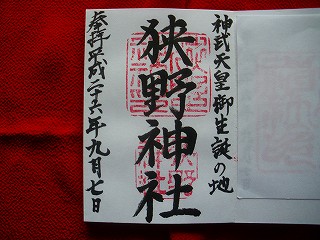 神武天皇御生誕の地
狹野神社
奉拝 平成二十六年九月七日